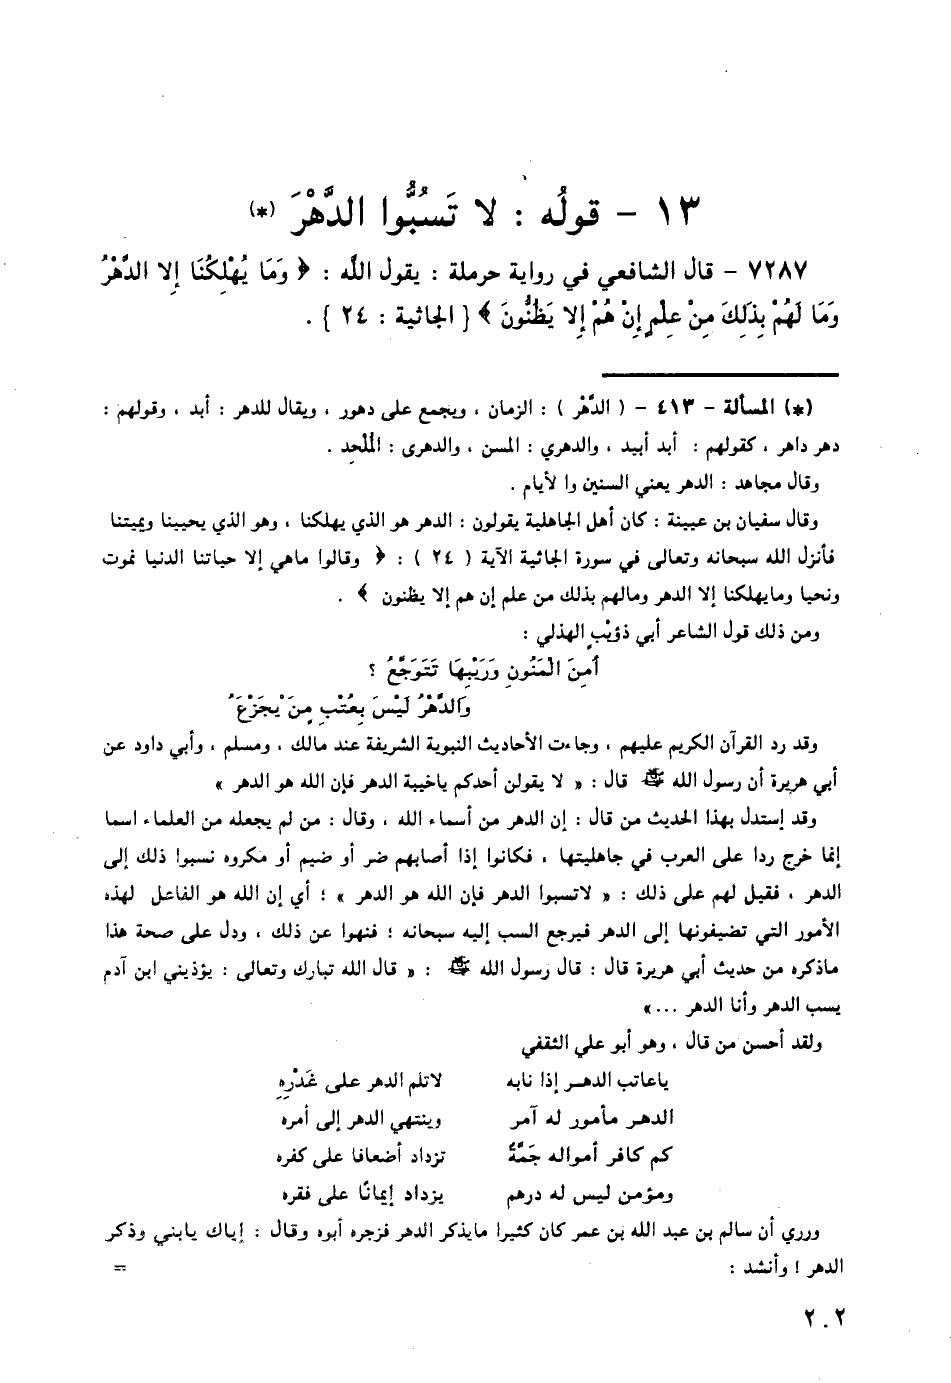 ١٣ - قولُه : لا تَسُبُّوا الدَّهْرَ (*)
٧٢٨٧ - قال الشافعي في رواية حرملة : يقول الله : ﴿ وَمَا يُهْلِكُنَا إِلا الدَّهْرُ
وَمَا لَهُمْ بِذَلِكَ مِنْ عِلْمٍ إِنْ هُمْ إِلا يَظُنُّونَ ﴾ { الجاثية : ٢٤ } .
(*) المسألة - ٤١٣ - ( الدَّهْر ) : الزمان ، ويجمع على دهور ، ويقال للدهر : أبد ، وقولهم :
دهر داهر ، كقولهم : أبد أبيد ، والدهري : المسن ، والدهرى : المُلْحِد .
وقال مجاهد : الدهر يعني السنين وا لأيام .
وقال سفيان بن عيينة : كان أهل الجاهلية يقولون : الدهر هو الذي يهلكنا ، وهو الذي يحيينا ويميتنا
فأنزل الله سبحانه وتعالى في سورة الجاثية الآية ( ٢٤ ) : ﴿ وقالوا ماهي إلا حياتنا الدنيا نموت
ونحيا ومايهلكنا إلا الدهر ومالهم بذلك من علم إن هم إلا يظنون ﴾ .
ومن ذلك قول الشاعر أبي ذؤيْبٍ الهذلي :
أمِنَ الْمَنُونِ وَرَيْبِهَا تَتَوَجَّعُ ؟
وَالدَّهْرُ لَيْسَ بِعُتْبٍ مِنَ يْجَزْعَُ
وقد رد القرآن الكريم عليهم ، وجاءت الأحاديث النبوية الشريفة عند مالك ، ومسلم ، وأبي داود عن
أبي هريرة أن رسول الله ﷺ قال : « لا يقولن أحدكم ياخيبة الدهر فإن الله هو الدهر »
وقد إستدل بهذا الحديث من قال : إن الدهر من أسماء الله ، وقال : من لم يجعله من العلماء اسما
إنما خرج ردا على العرب في جاهليتها ، فكانوا إذا أصابهم ضر أو ضيم أو مكروه نسبوا ذلك إلى
الدهر ، فقيل لهم على ذلك : « لاتسبوا الدهر فإن الله هو الدهر » ؛ أي إن الله هو الفاعل لهذه
الأمور التي تضيفونها إلى الدهر فيرجع السب إليه سبحانه ؛ فنهوا عن ذلك ، ودل على صحة هذا
ماذكره من حديث أبي هريرة قال : قال رسول الله ﷺ : « قال الله تبارك وتعالى : يؤذيني ابن آدم
يسب الدهر وأنا الدهر ...»
ولقد أحسن من قال ، وهو أبو علي الثقفي
ياعاتب الدهـر إذا نابه لاتلم الدهر على غَدْرِهِ
الدهـر مأمور له آمر وينتهي الدهر إلى أمره
كم كافر أمواله جَمَّةٌ تزداد أضعافا على كفره
ومؤمن ليس له درهم يزداد إيمانًا على فقره
ورري أن سالم بن عبد الله بن عمر كان كثيرا مايذكر الدهر فزجره أبوه وقال : إياك يابني وذكر
الدهر ! وأنشد : =
٢٠٢